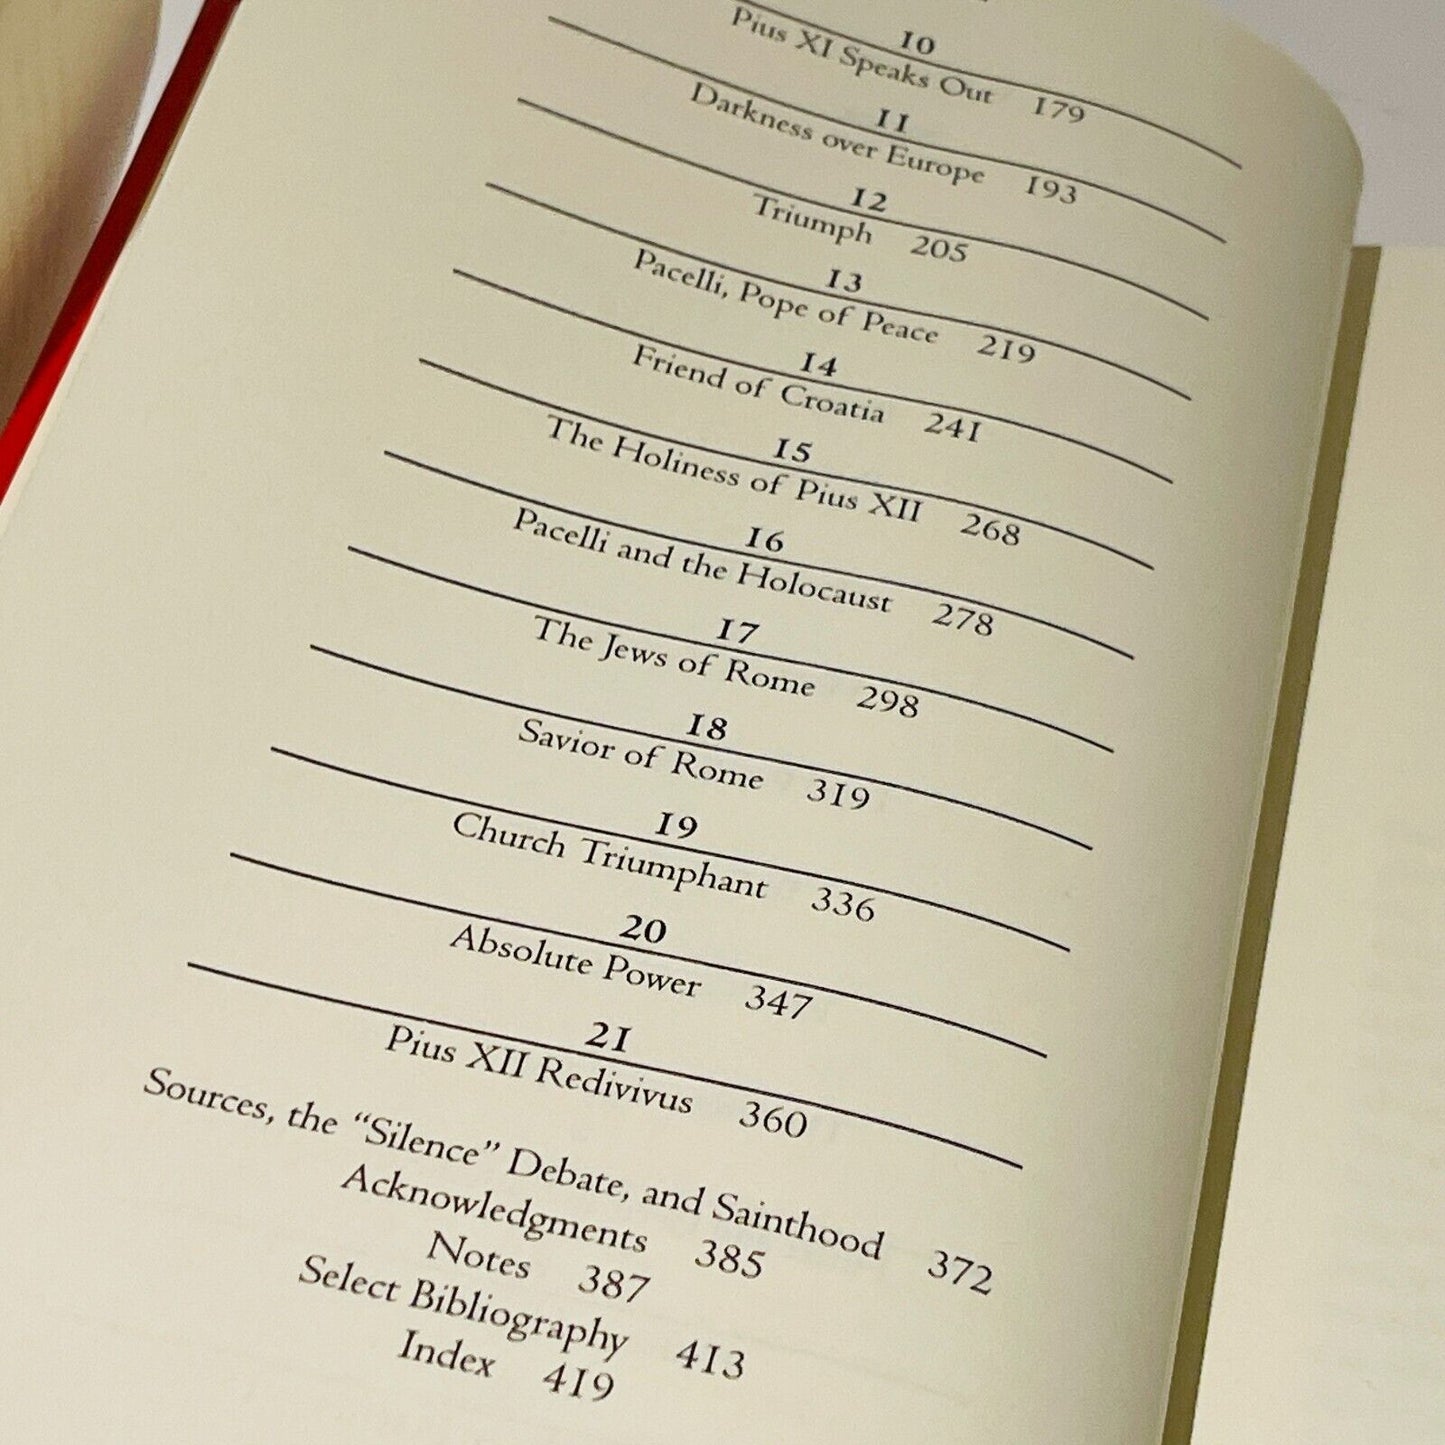 10
Pius XI Speaks Out 179
11
Darkness over Europe 193
12
Triumph 205
13
Pacelli, Pope of Peace 219
14
Friend of Croatia 241
15
The Holiness of Pius XII 268
16
Pacelli and the Holocaust 278
17
The Jews of Rome 298
18
Savior of Rome 319
19
Church Triumphant 336
20
Absolute Power 347
21
Pius XII Redivivus 360
Sources, the “Silence” Debate, and Sainthood 372
Acknowledgments 385
Notes 387
Select Bibliography 413
Index 419